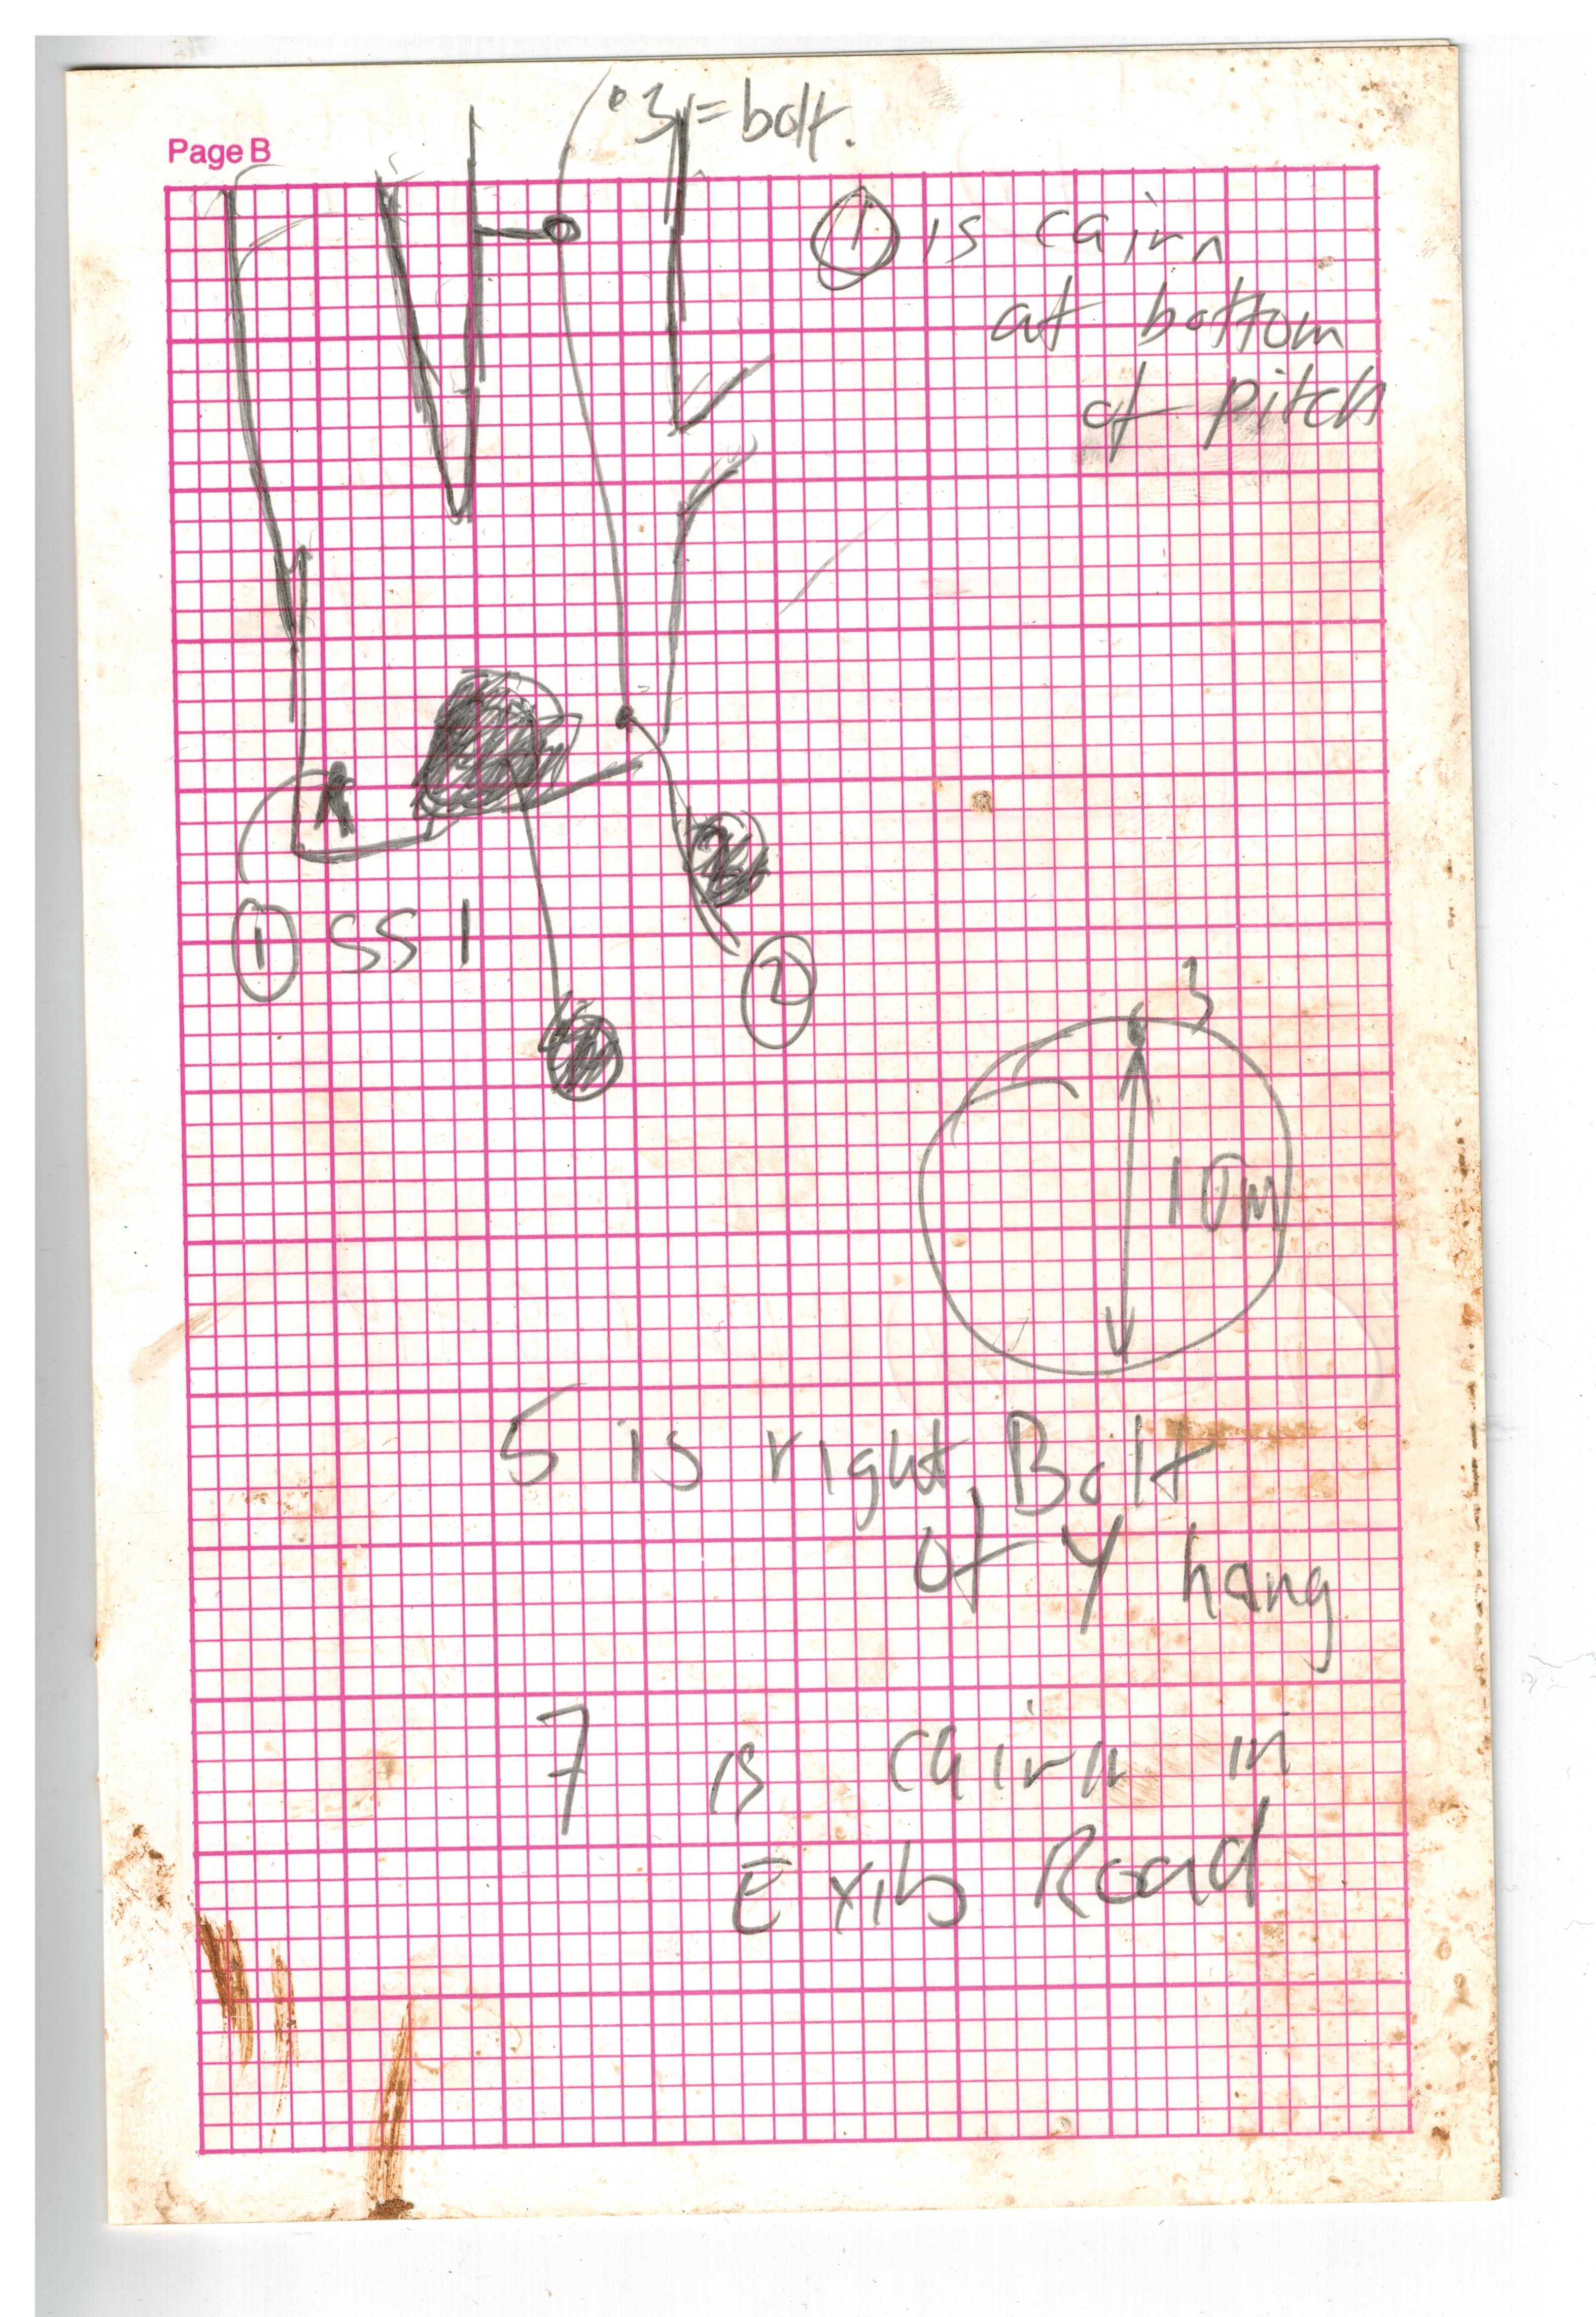 Page B
3 = bolt.
① is cairn
at bottom
of pitch
① SS 1
②
3
10m
5 is right Bolt
of Y hang
7 is cairn in
Exib Road